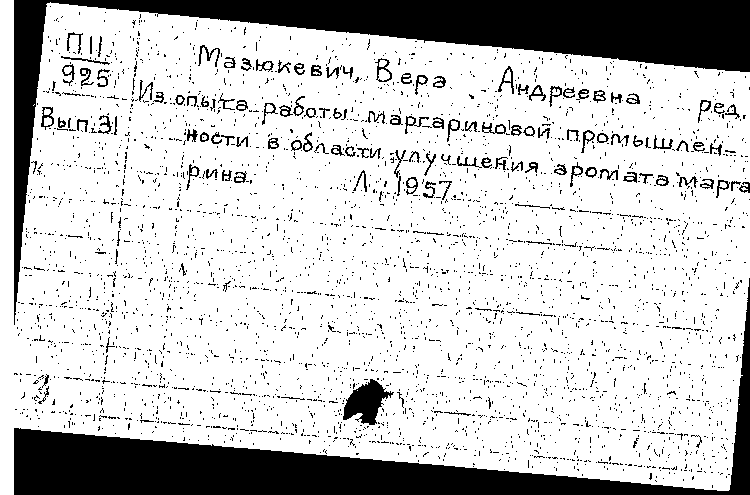 П11
925
Вып.31
Мазюкевич, Вера Андреевна ред.
Из опыта работы маргариновой промышлен-
ности в области улучшения аромата марга
рина. Л., 1957.
3